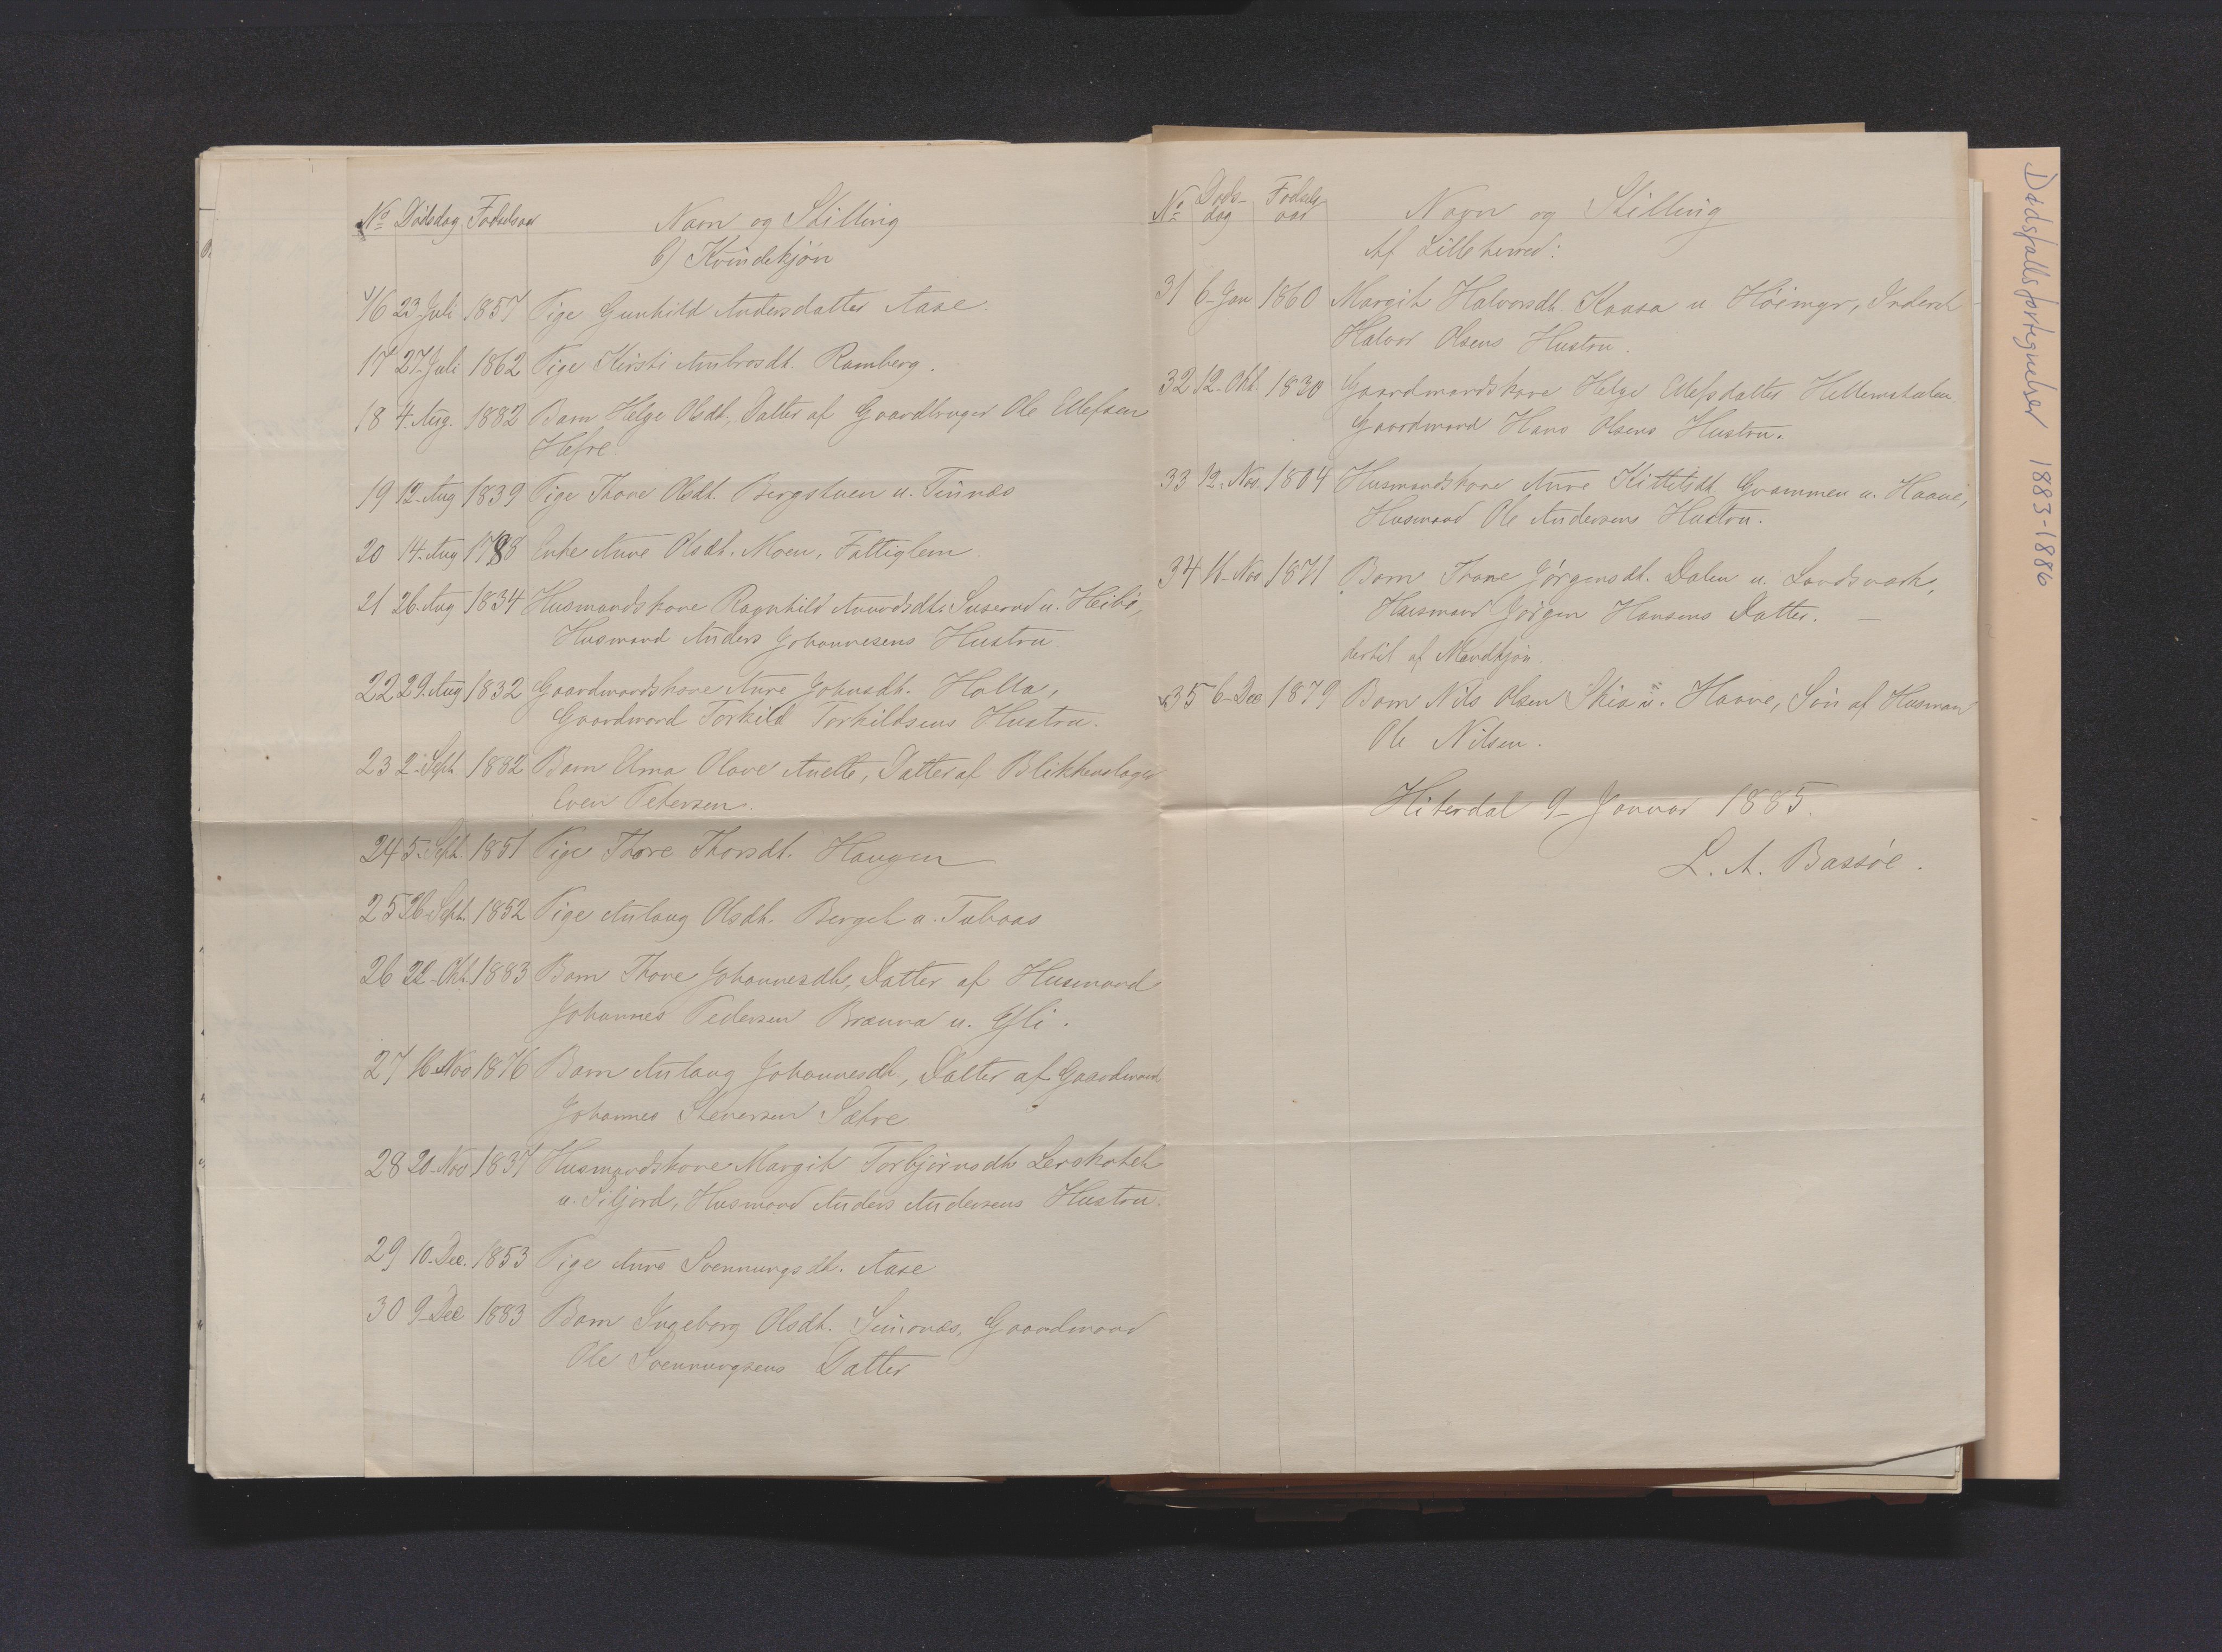 No Dödsdag Fødselsaar Navn og Stilling
b) Kvindekjön
16 23 Juli 1857 Pige Gunhild Andersdatter Aase.
17 27 Juli 1862 Pige Kirsti Ambrosdt. Ramberg.
18 4. Aug. 1882 Barn Helge Olsdt., Datter af Gaardbruger Ole Ellefsen
Hefre
19 12. Aug 1839 Pige Thone Olsdt. Bergstuen u. Tinnæs
20 14. Aug 1788 Enke Anne Olsdt. Moen, Fattiglem.
21 26. Aug 1834 Husmandskone Ragnhild Amundsdt. Suserud u. Heibö,
Husmand Anders Johannesens Hustru
22 29. Aug 1832 Gaardmandskone Anne Johnsdt. Holla,
Gaardmand Torkild Torkildsens Hustru.
23 2. Sept 1882 Barn Alma Olave Anette, Datter af Blikkenslager
Even Petersen.
24 5. Sept. 1851 Pige Thore Thorsdt. Haugen
25 26. Sept. 1852 Pige Anlaug Olsdt. Berget u. Tuboas
26 22. Okt. 1883 Barn Thone Johannesdt, Datter af Husmand
Johannes Pedersen Brænna u. Gli.
27 16. Nov 1876 Barn Anlaug Johannesdt., Datter af Gaardmand
Johannes Stenersen Sætre
28 20. Nov 1837 Husmandskone Margit Torbjørnsdt. Lerskotet
u. Siljord, Husmand Anders Andersens Hustru
29 10. Dec. 1853 Pige Anne Svennungsdt. Aase
30 9. Dec 1883 Barn Ingeborg Olsdt. Gaardmand
Ole Svennungsens Datter
No Döds- Födsels- Navn og Stilling
dag aar
Af Lilleherred:
31 6. Jan 1860 Margit Halvorsdt. Kaasa u Höimyr, Inderst
Halvor Olsens Hustru.
32 12. Okt. 1830 Gaardmandskone Helge Ellefsdatter
Gaardmand Hans Olsens Hustru.
33 12. Nov. 1804 Husmandskone Anne Kittilsdt. Grammen u. Haave,
Husmand Ole Andersens Hustru.
34 16. Nov 1871 Barn Thone Jörgensdt. Dalen u. Landsværk,
Husmand Jörgen Hansens Datter. —
dertil af Mandkjön.
35 6. Dec 1879 Barn Nils Olsen Skia u. Haave, Sön af Husmand
Ole Nilsen.
Hiterdal 9. Januar 1885.
L. A. Bassöe.
Dødsfallsfortegnelser 1883-1886